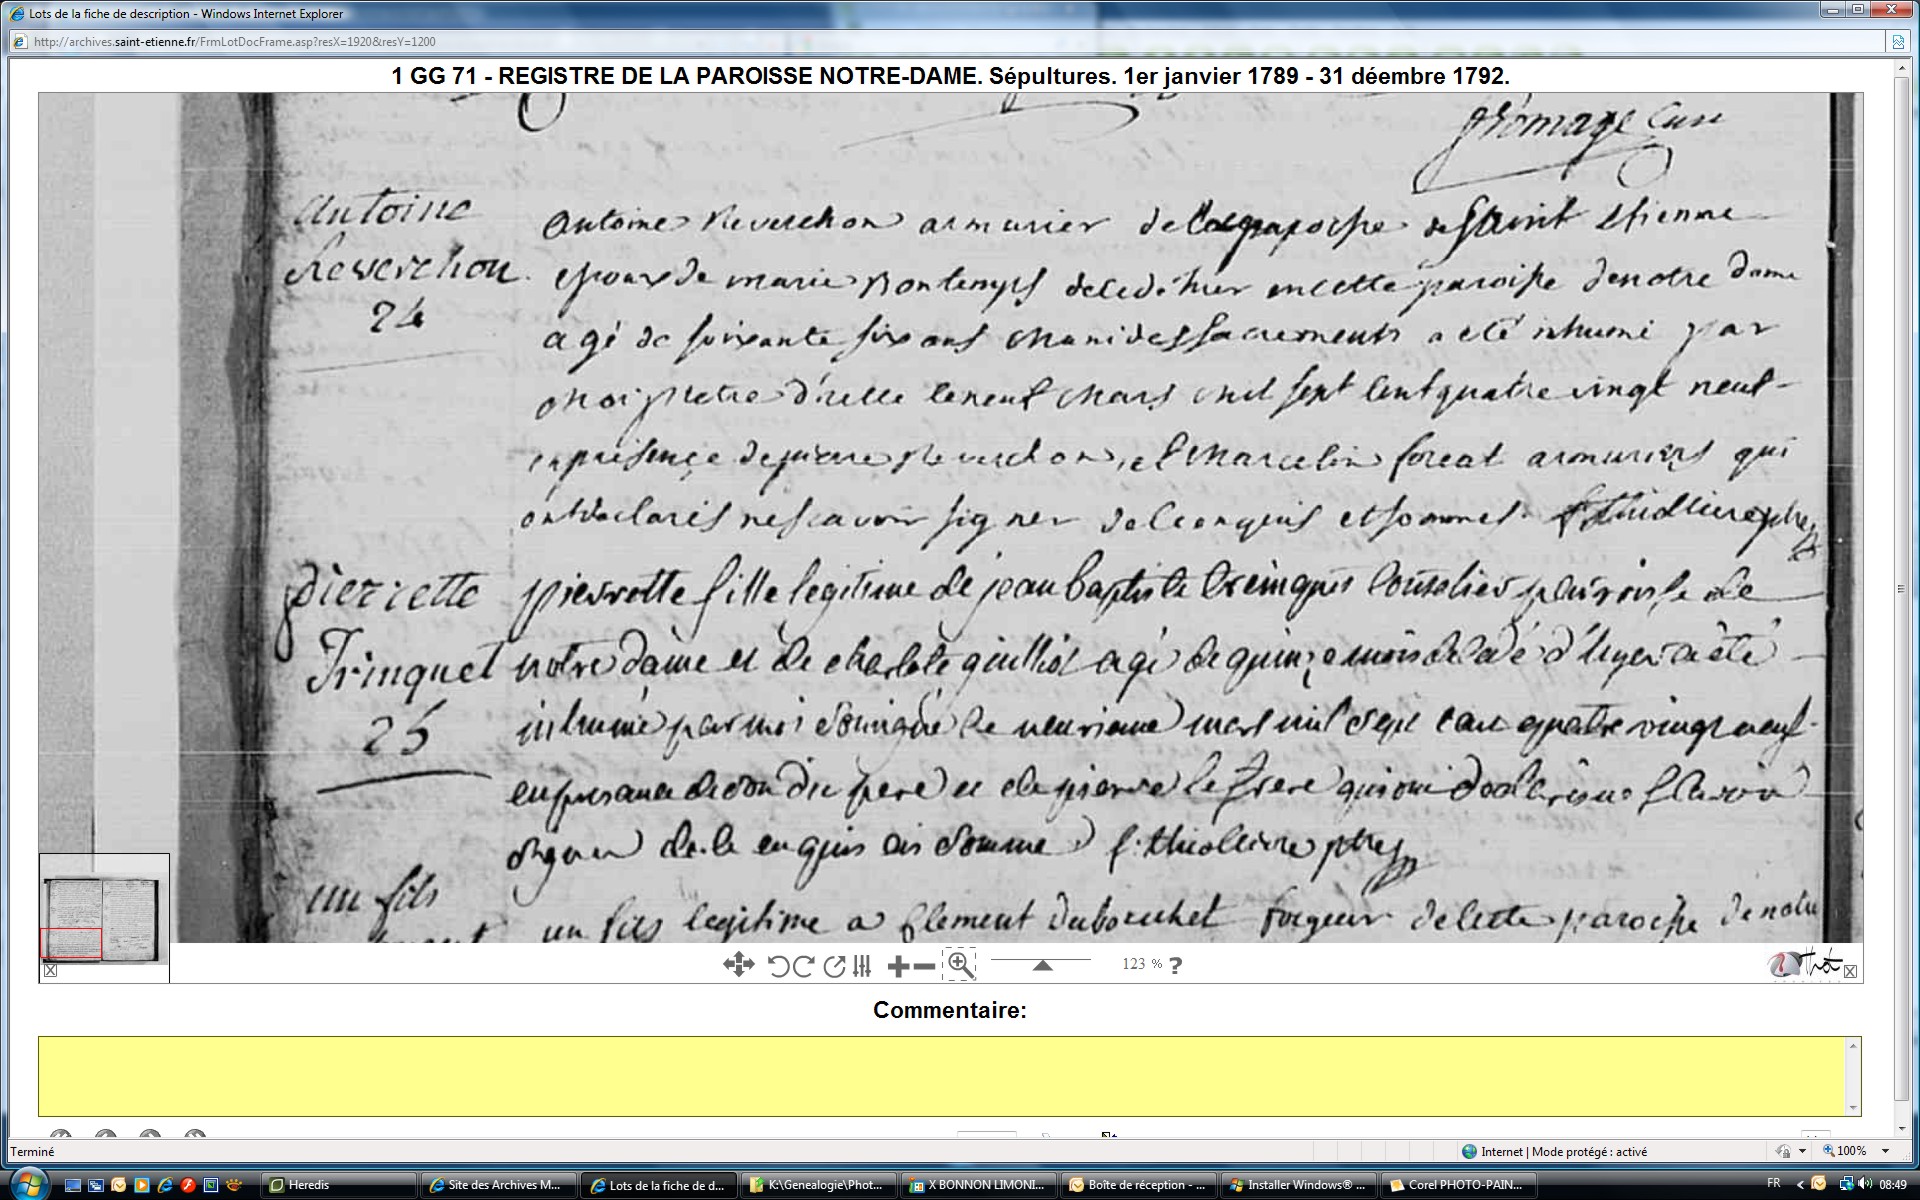 Lots de la fiche de description - Windows Internet Explorer
http://archives.saint-etienne.fr/FrmLotDocFrame.asp?resX=1920&resY=1200
1 GG 71 - REGISTRE DE LA PAROISSE NOTRE-DAME. Sépultures. 1er janvier 1789 - 31 déembre 1792.
fromage Curé
antoine
Reverchon
24
antoine Reverchon armurier de paroisse de Saint Etienne
epoux de marie Bontemps decedé hier en cette paroisse de notre dame
agé de soixante six ans muni des sacrements a eté inhumé par
moi pretre d'icelle le neuf mars mil sept cent quatre vingt neuf
en présence de pierre Reverchon, et Marcelin foreat armuriers qui
ont declarés ne scavoir signer de ce enquis et sommes f thiolliere ptre
pierrette
Trinquet
25
pierrette fille legitime de jean baptiste coutelier paroisse de
notre dame et de charlote guilliot agé de quinze mois decedé d'hyer a été
inhumé par moi soussigné le neuvieme mars mil sept cent quatre vingt neuf
en presance de son dit pere et de pierre le frere qui ont declaré ne scavoir
signer de ce enquis et sommé f. thiolliere ptre
un fils
un fils legitime a Clement dubouchet forgeur de cette paroisse de notre
123 % ?
Commentaire:
Terminé
Internet | Mode protégé : activé
100%
Heredis
Site des Archives M...
Lots de la fiche de d...
K:\Genealogie\Phot...
X BONNON LIMONI...
Boîte de réception - ...
Installer Windows® ...
Corel PHOTO-PAIN...
FR
08:49